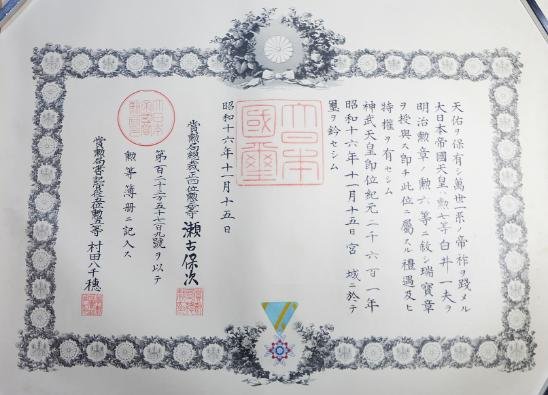 天佑ヲ保有シ萬世一系ノ帝祚ヲ踐メル
大日本帝國天皇ハ勲七等白井一夫ヲ
明治勲章ノ勲六等ニ敍シ瑞寶章
ヲ授與ス即チ此位ニ屬スル禮遇及ヒ
特權ヲ有セシム
神武天皇即位紀元二千六百一年
昭和十六年十一月十五日宮城ニ於テ
璽ヲ鈐セシム
大日本
國璽
昭和十六年十一月十五日
賞勲局總裁正四位勲二等瀬古保次
第百二十二万五千七百九號ヲ以テ
勲等簿册ニ記入ス
賞勲局書記官從五位勲五等村田八千穂